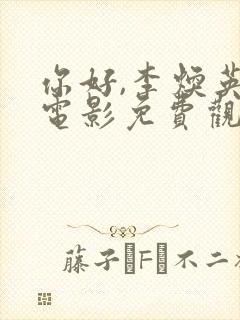 你好,李煥英
電影免費觀
藤子・F・不二